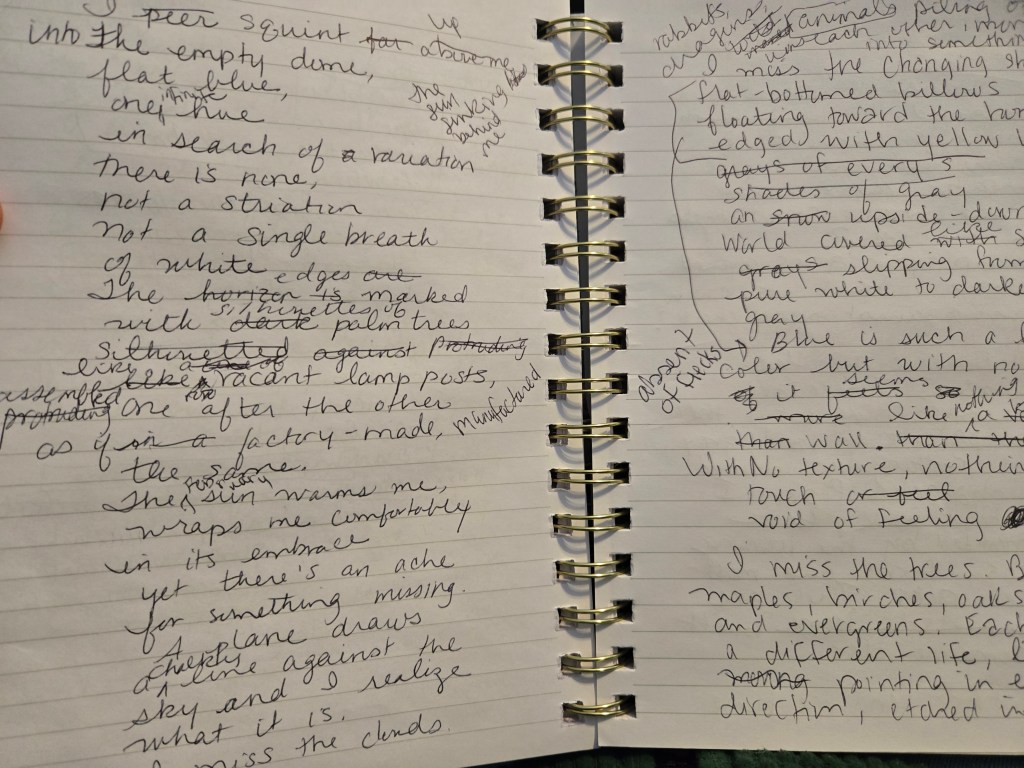 I peer squint far above me up
into the empty dome,
flat blue,
one hue
the
sun
sinking
behind
me
in search of a variation
there is none,
not a striation
not a single breath
of white
edges are
The horizon is marked
silhouettes of
with dark palm trees
silhouetted against protruding
like a
assembled like vacant lamp posts,
protruding one after the other
as if in a factory-made, manufactured
the same.
The sun warms me,
wraps me comfortably
in its embrace
yet there's an ache
for something missing.
A plane draws
chunky
a line against the
sky and I realize
what it is.
I miss the clouds.
rabbits, animals piling
dragons, each other
I into
miss the changing
flat-bottomed pillows
floating toward the
edged with yellow
grays of every s
shades of gray
an upside-down
world covered with
grays slipping from
pure white to darke
gray
absent
of flecks
Blue is such a
color but with no
it feels seems so
more like nothing a
than wall. than
With No texture, nothin
touch or feel
void of feeling
I miss the trees. B
maples, birches, oaks
and evergreens. Eac
a different life, l
pointing in e
direction, etched in